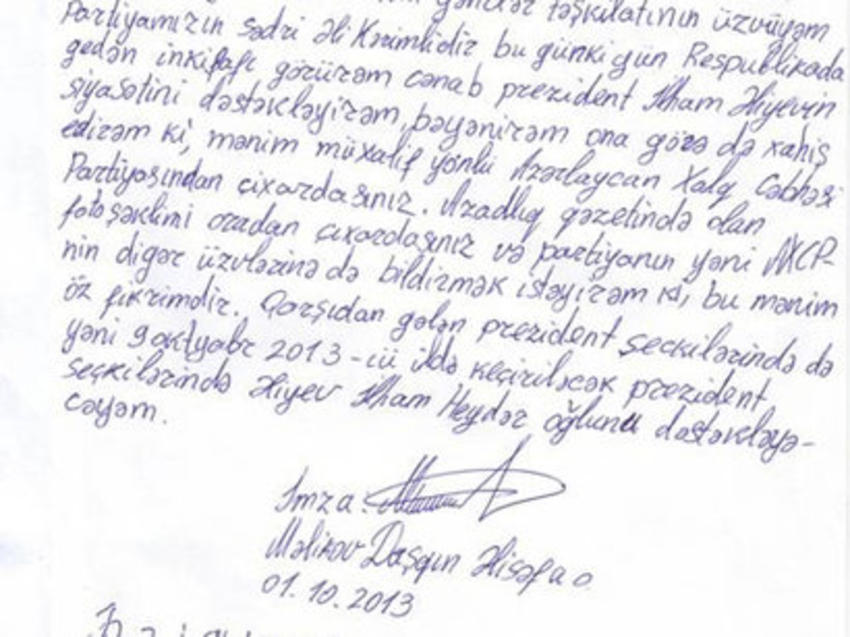 gənclər təşkilatının üzvüyəm
Partiyamızın sədri Əli Kərimlidir bu günki gün Respublikada
gedən inkişafı görürəm cənab prezident İlham Əliyevin
siyasətini dəstəkləyirəm, bəyənirəm ona görə də xahiş
edirəm ki, mənim müxalif yönlü Azərbaycan Xalq Cəbhəsi
Partiyasından çıxardasınız. Azadlıq qəzetində olan
foto şəklimi oradan çıxardasınız və partiyanın yəni AXCP-
nin digər üzvlərinə də bildirmək istəyirəm ki, bu mənim
öz fikrimdir. Qarşıdan gələn prezident seçkilərində də
yəni 9 oktyabr 2013-cü ildə keçiriləcək prezident
seçkilərində Əliyev İlham Heydər oğlunu dəstəkləyə-
cəyəm.
İmza:
Məlikov Daşqın Əlisəfa o.
01.10.2013